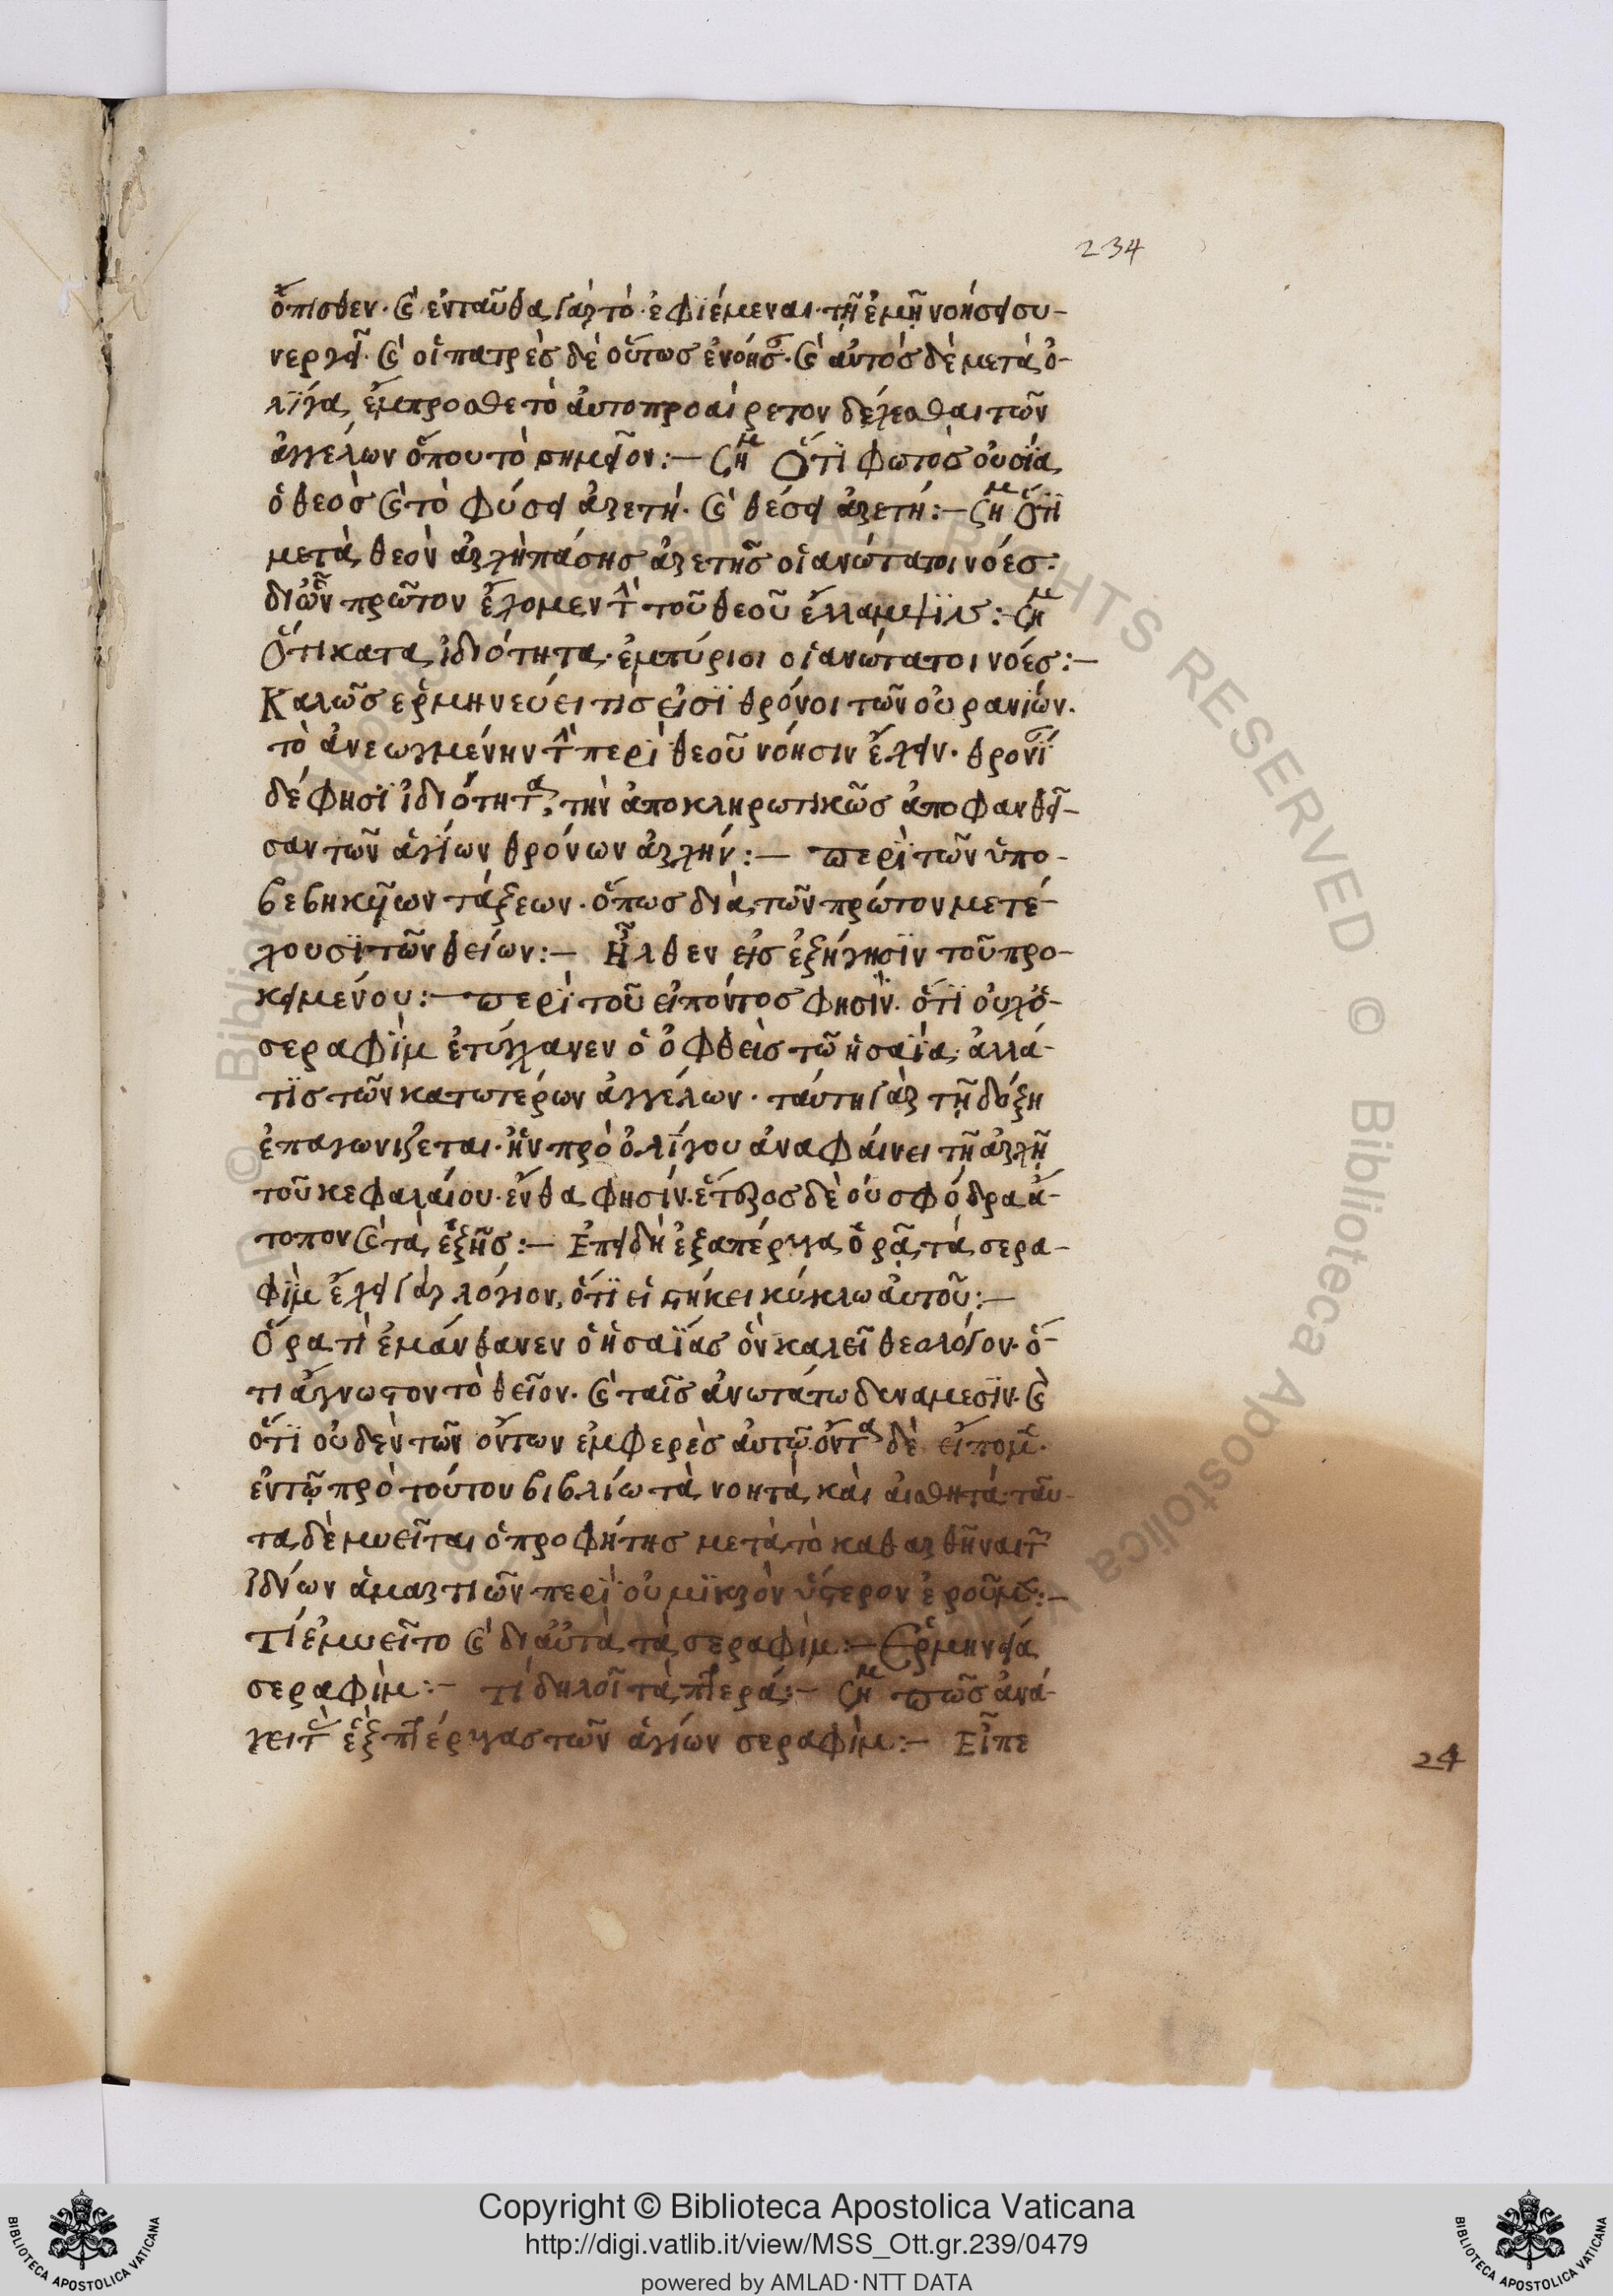 234
ὄπισθεν· κ(αὶ) ἐνταῦθα γὰρ τὸ· ἐφϊέμεναι· τῇ ἐμῇ νοήσει συ-
νεργεῖ· κ(αὶ) οἱ πατρὲς δὲ οὕτως ἐνόησ(αν)· κ(αὶ) αὐτὸς δὲ μετὰ ὀ-
λΐγα ἔμπροσθε τὸ αὐτοπροαίρετον δέχεσθαι τῶν
ἀγγέλων ὅπου τὸ σημεῖον:– ση(μείωσαι) Ὅτϊ φωτὸς οὐσΐα
ὁ θεὸς κ(αὶ) τὸ φύσει ἀρετή· κ(αὶ) θέσει ἀρετή:– ση(μείωσαι) Ὅτϊ
μετὰ θεὸν ἀρχὴ πάσης ἀρετῆς οἱ ανώτατοι νόες·
διῶν πρῶτον ἔχομεν τ(ὴν) τοῦ θεοῦ ἔλλαμψϊν:– ση(μείωσαι)
Ὅτι κατα ἰδιότητα· ἐμπύριοι οἱ ανώτατοι νοές:–
Καλῶς ερμηνεύει τίς εἰσϊ θρόνοι τῶν οὐρανϊών·
τὸ ἀνεωγμένην τ(ὴν) περϊ θεοῦ νόησιν ἔχειν·
δέ φησϊ ἰδιότητα, τὴν ἀποκληρωτικῶς ἀποφανθεῖ-
σαν τῶν ἁγΐων θρόνων ἀρχήν:– περϊ τῶν ὑπο-
βεβηκῄων τάξεων· ὅπως διὰ τῶν πρώτον μετέ-
χουσϊ τῶν θείων:– Ἦλθεν εἰς ἐξήγησϊν τοῦ προ-
κειμένου:– περϊ τοῦ εἰπόντος φησϊν· ὅτϊ οὐχὅ-
σεραφϊμ ἐτύγχανεν ὁ ὀφθεὶς τῶ ἡσαΐα· ἀλλά-
τϊς τῶν κατωτέρων ἀγγέλων· ταύτη γὰρ τῇ δόξη
ἐπαγωνιζεται· ἣν πρὸ ὀλΐγου ἀναφάινει τῇ ἀρχῇ
τοῦ κεφαλαίου· ἔνθα φησίν· ἕτερος δὲ οὐ σφόδρα ἄ-
τοπον κ(αὶ) τὰ ἑξῆς:– Ἐπειδὴ ἑξαπέρυγα ὁρᾶ τὰ σερα-
φϊμ ἔχει γὰρ λόγιον, ὅτϊ εἱστήκει κύκλω αὐτοῦ:–
Ὅρα τὶ ἐμάνθανεν ὁ ἡσαΐας ὃν καλεῖ θεολόγον· ὅ-
τι ἄγνωστον τὸ θεῖον· κ(αὶ) ταῖς ἀνωτάτω δυναμεσϊν· κ(αὶ)
ὅτϊ οὐδὲν τῶν ὄντων ἐμφερὲς αὐτῷ· ὄντα δὲ εἴπομ(εν)·
ἐν τῷ πρὸ τούτου βιβλίω τὰ νοητὰ κὰι ἀισθητά· ταῦ-
τα δὲ μυεῖται ὁ προφήτης μετὰ τὸ καθαρθῆναι τ(ῶν)
ἰδίων ἁμαρτιῶν περϊ οὗ μϊκρὸν ὕστερον ἐροῦμ(εν):–
Τί ἐμυεῖτο κ(αὶ) διαὐτὰ τὰ σεραφὶμ:– Ἑρμηνεία
σεραφὶμ:– τί δηλοῖ τὰ πτερά:– ση(μείωσαι) πῶς ἀνά-
γει τ(ὰς) ἓξ πτέρυγας τῶν ἁγίων σεραφὶμ:– Εἶπε
24
Copyright © Biblioteca Apostolica Vaticana
http://digi.vatlib.it/view/MSS_Ott.gr.239/0479
powered by AMLAD·NTT DATA